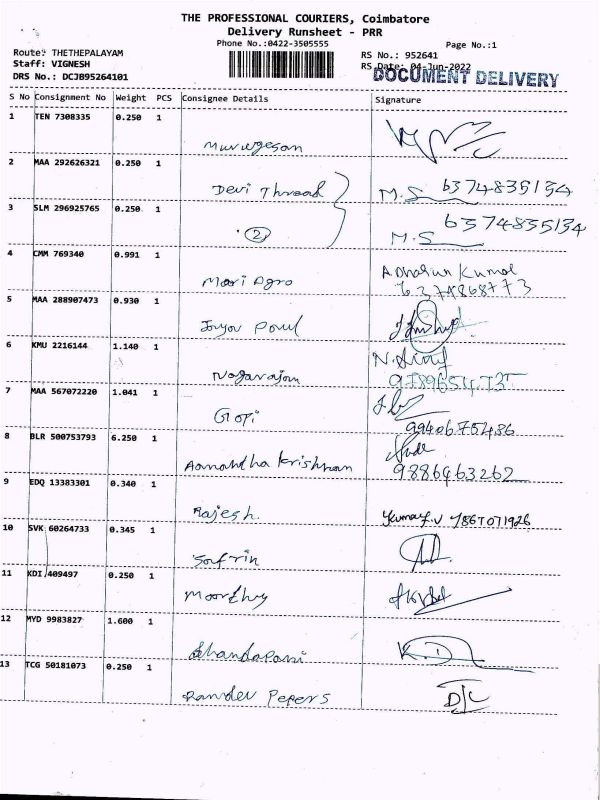 THE PROFESSIONAL COURIERS, Coimbatore
Delivery Runsheet - PRR
Phone No.:0422-3505555
Page No.:1
Route: THETHEPALAYAM
RS No.: 952641
Staff: VIGNESH
RS Date: 04-Jun-2022
DOCUMENT DELIVERY
DRS No.: DCJB95264101
S No Consignment No Weight PCS Consignee Details Signature
1 TEN 7308335 0.250 1
Murugesan
2 MAA 292626321 0.250 1
Devi Thread M.S 6374835134
3 SLM 296925765 0.250 1
2 M.S 6374835134
4 CMM 769340 0.991 1
Mari Agro
5 MAA 288907473 0.930 1
6 KMU 2216144 1.140 1
Nagarajan
7 MAA 567072220 1.041 1
Gopi
9940675436
8 BLR 500753793 6.250 1
krishnan 9886463262
9 EDQ 13383301 0.340 1
Rajesh
10 SVK 60264733 0.345 1
Safrin
11 KDI 409497 0.250 1
Moorthy
12 MYD 9983827 1.600 1
K.D
13 TCG 50181073 0.250 1
Ramdev Pepers